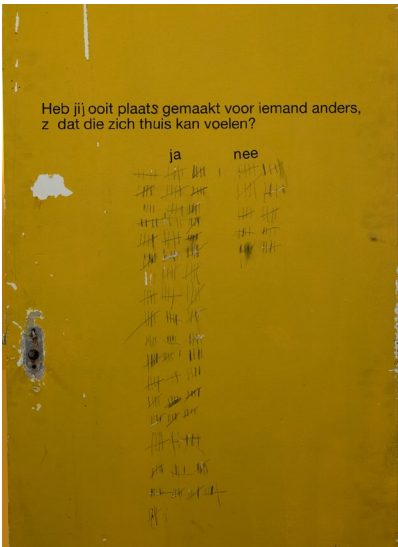 Heb jij ooit plaats gemaakt voor iemand anders,
z dat die zich thuis kan voelen?
ja nee